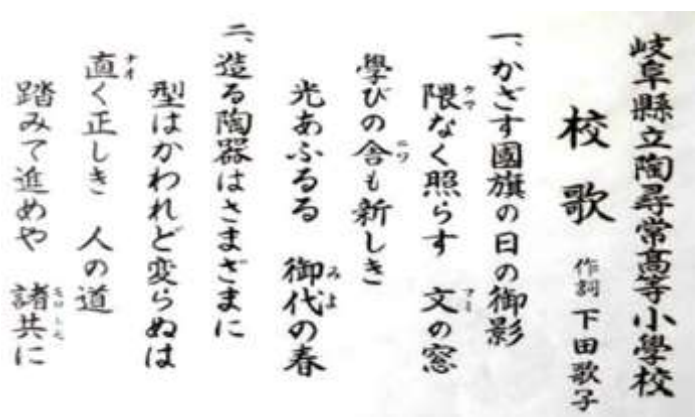 岐阜縣立陶尋常高等小學校
校歌 作詞 下田歌子
一、かざす國旗の日の御影
隈なく照らす 文の窓
學びの舎も新しき
光あふるる 御代の春
二、造る陶器はさまざまに
型はかわれど変らぬは
直く正しき 人の道
踏みて進めや 諸共に